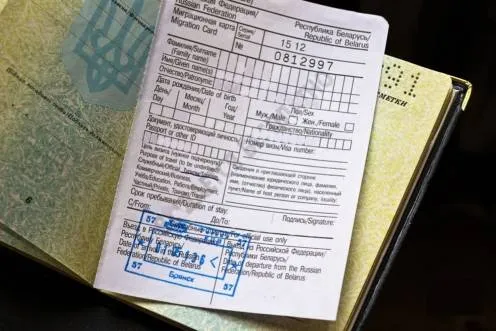 Russian Federation
Миграционная карта
Migration Card
Республика Беларусь/
Republic of Belarus
Серия/
№
1512
0812997
Фамилия/Surname
(Family name)
Имя/Given name(s)
Отчество/Patronymic
Дата рождения/Date of birth
День/ Месяц/ Год/
Day Month Year
Пол/Sex
Муж./Male Жен./Female
Гражданство/Nationality
Документ, удостоверяющий личность/
Passport or other ID
Номер визы/Visa number:
Цель визита (нужное подчеркнуть)/
Purpose of travel (to be underlined):
Служебный/Official
Коммерческий/Business
Учеба/Education, Работа/Employment
Частный/Private, Транзит/Transit
Сведения о приглашающей стороне
(наименование юридического лица, фамилия,
имя, (отчество) физического лица), населенный
пункт/Name of host person or company, locality:
Срок пребывания/Duration of stay:
С/From: До/To:
Подпись/Signature:
For official use only
Въезд в Российскую
Республику Беларусь/
Date of
Federation/Republic of Belarus
Выезд из Российской Федерации/
Республики Беларусь/
Date of departure from the Russian
Federation/Republic of Belarus
57
57
57
Брянск
6
ОТМЕТКИ